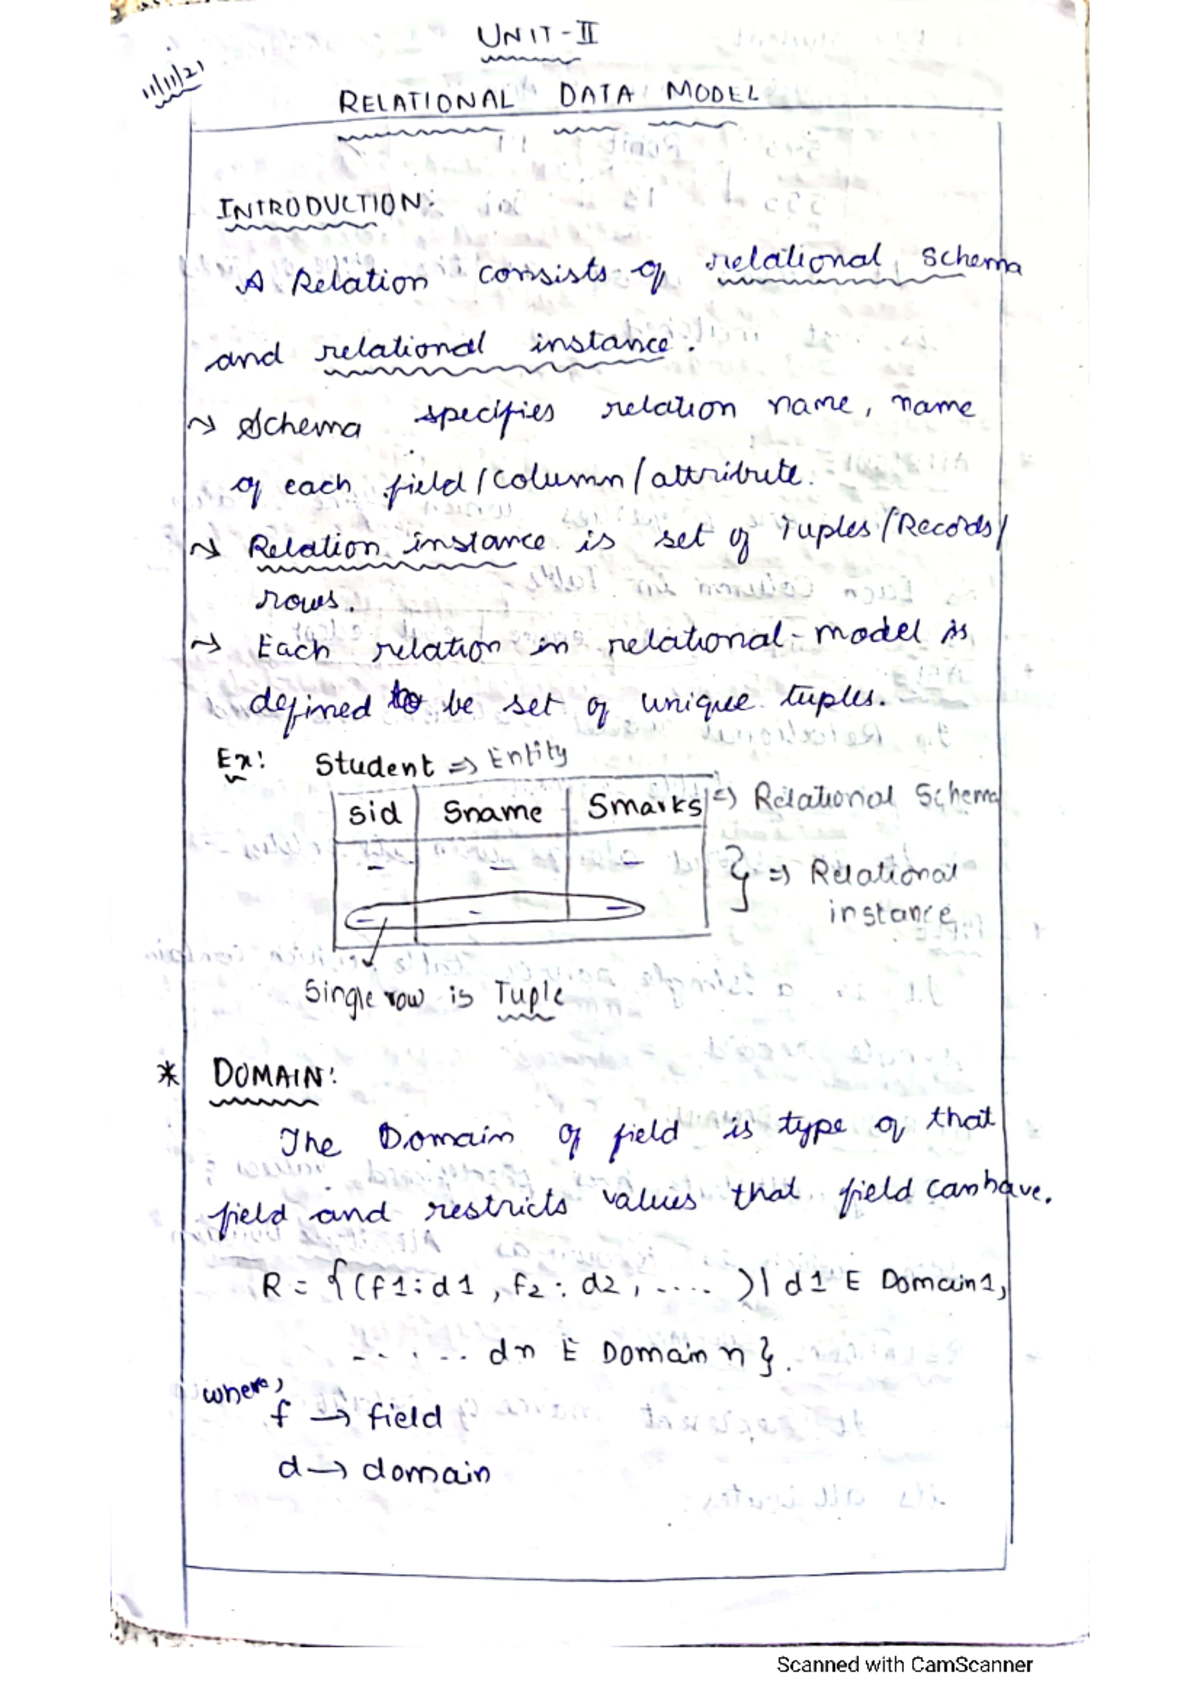 UNIT-II
11/11/21
RELATIONAL DATA MODEL
INTRODUCTION:
A Relation consists of relational schema
and relational instance.
~> Schema specifies relation name, name
of each field/column/attribute.
~> Relation instance is set of Tuples/Records/
rows.
~> Each relation in relational-model is
defined to be set of unique tuples.
Ex: Student => Entity
sid Sname Smarks => Relational Schema
- - -
} => Relational
- - - instance
Single row is Tuple
* DOMAIN:
The Domain of field is type of that
field and restricts values that field can have.
R = {(f1:d1, f2:d2, ....)| d1 E Domain1,
..... dn E Domain n}.
where,
f → field
d → domain
Scanned with CamScanner